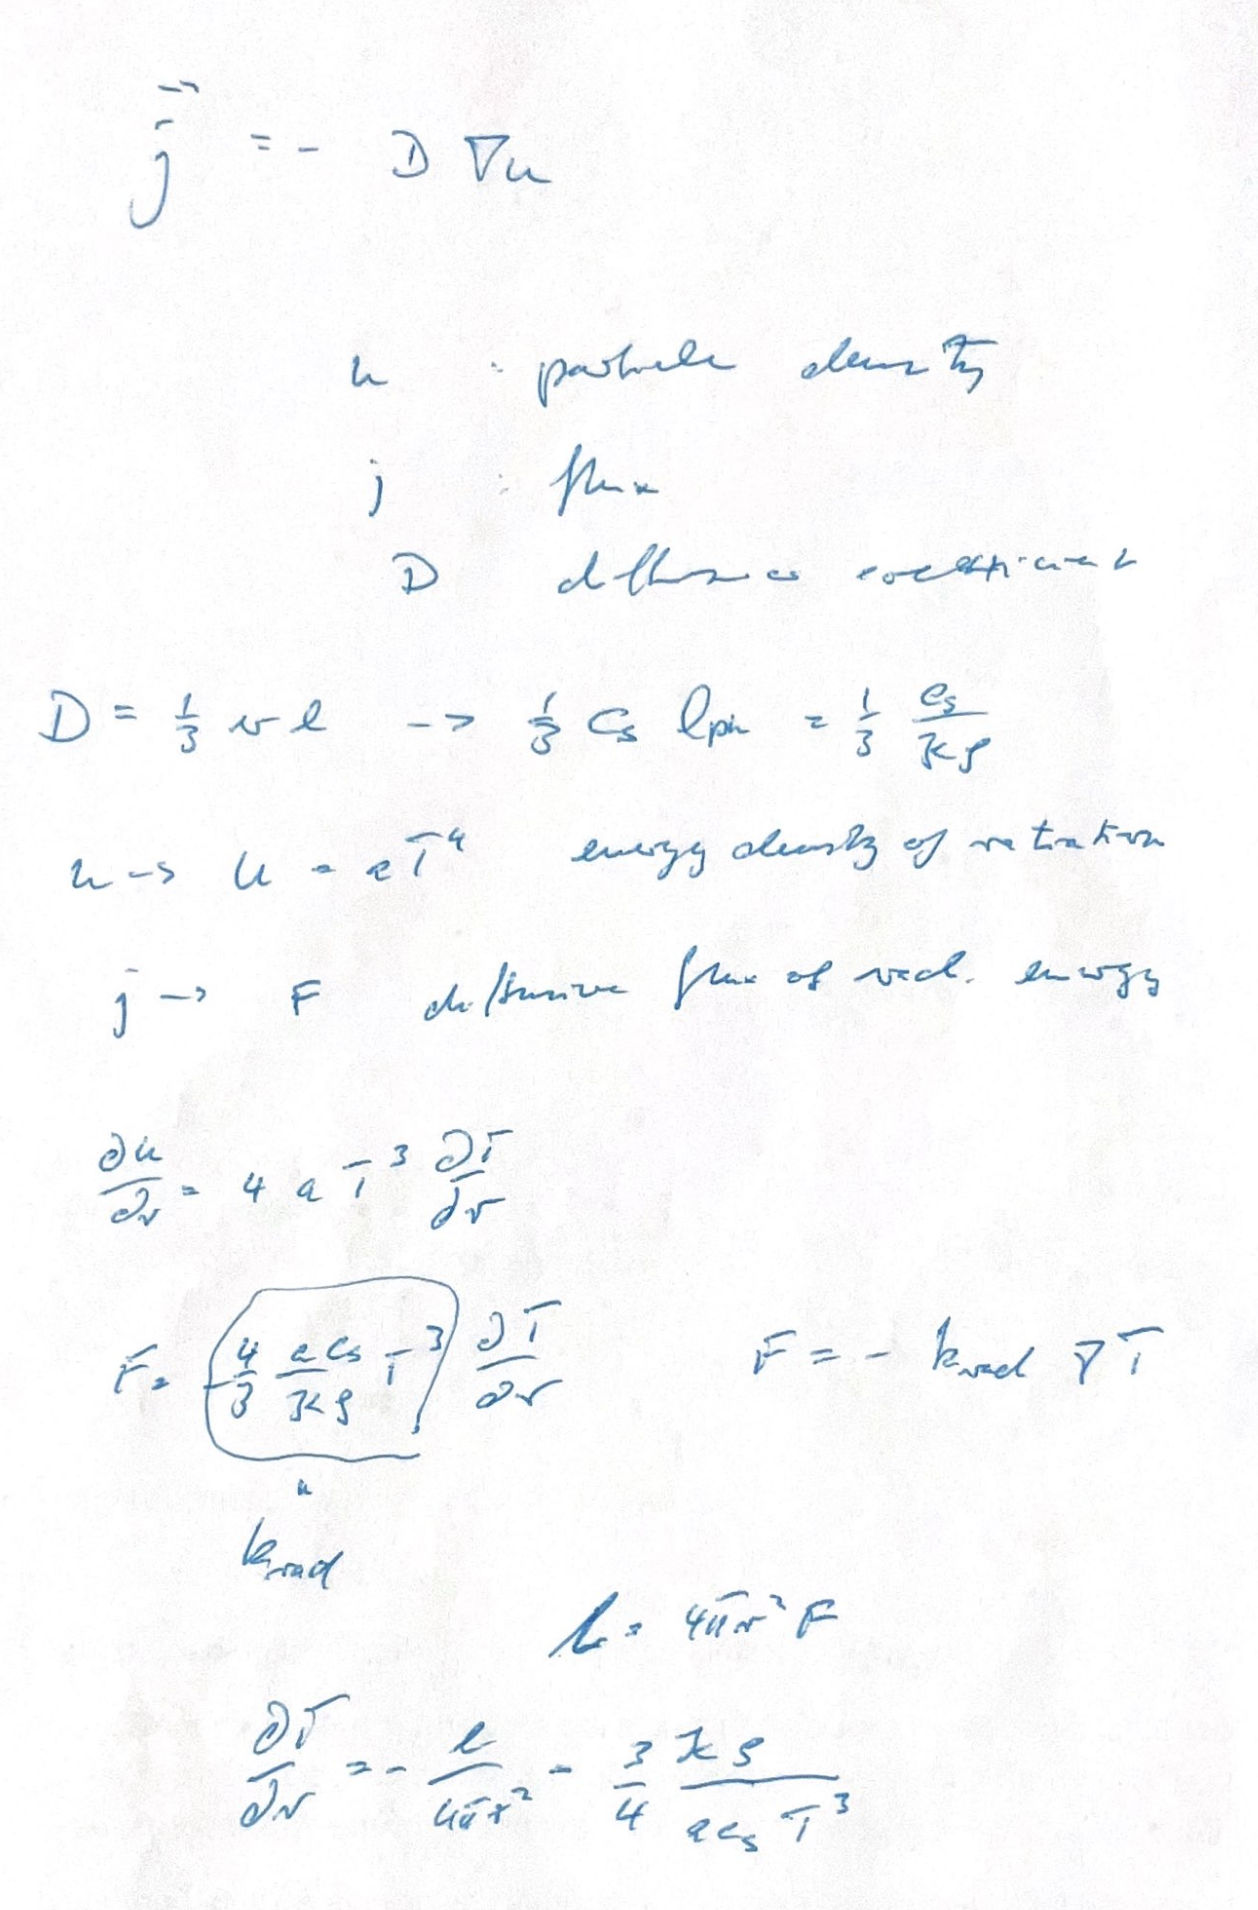 j⃗ = - D ∇n
n : particle density
j : flux
D diffusion coefficient
D = 1/3 v l -> 1/3 c_s l_ph = 1/3 c_s/(κρ)
n -> u = aT^4 energy density of radiation
j -> F diffusive flux of rad. energy
∂u/∂r = 4 a T^3 ∂T/∂r
F = - 4/3 (a c_s)/(κρ) T^3 ∂T/∂r F = - k_rad ∇T
"
k_rad
l = 4πr² F
∂T/∂r = - l/(4πr²) - 3/4 κρ/(a c_s T^3)